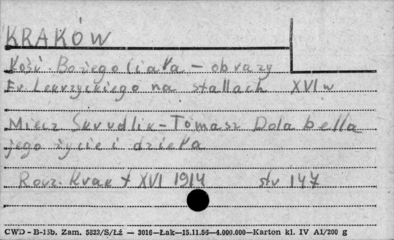 KRAKÓW
Kość. Bożego Ciała - obrazy
Er. Lekrzyckiego na stallach XVI w
Miecz Skrudlik - Tomasz Dolabella
jego życie i dzieła
Rocz. Krak t XVI 1914 str 147
CWD - B-13b. Zam. 5823/S/Łź - 3016-Łak-15.11.56-4.000.000-Karton kl. IV A1/200 g